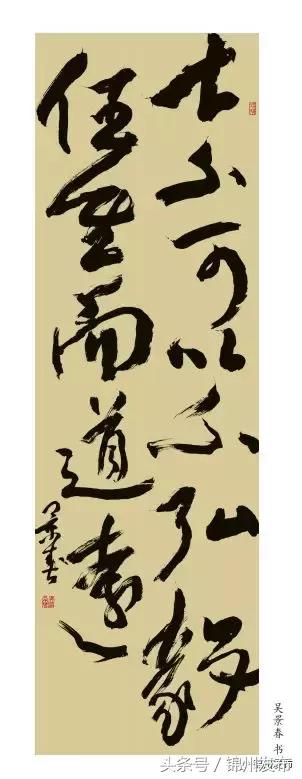 士不可以不弘毅
任重而道远
景春
吴景春 书
头条号／锦州发布